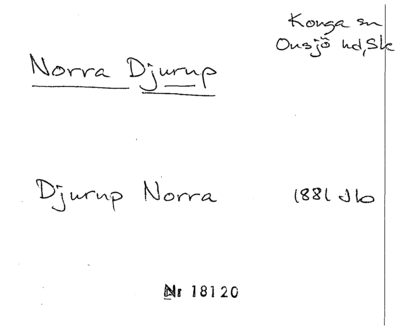 Konga sn
Onsjö hd, Sk
Norra Djurup
Djurup Norra 1881 Jb
Nr 18120